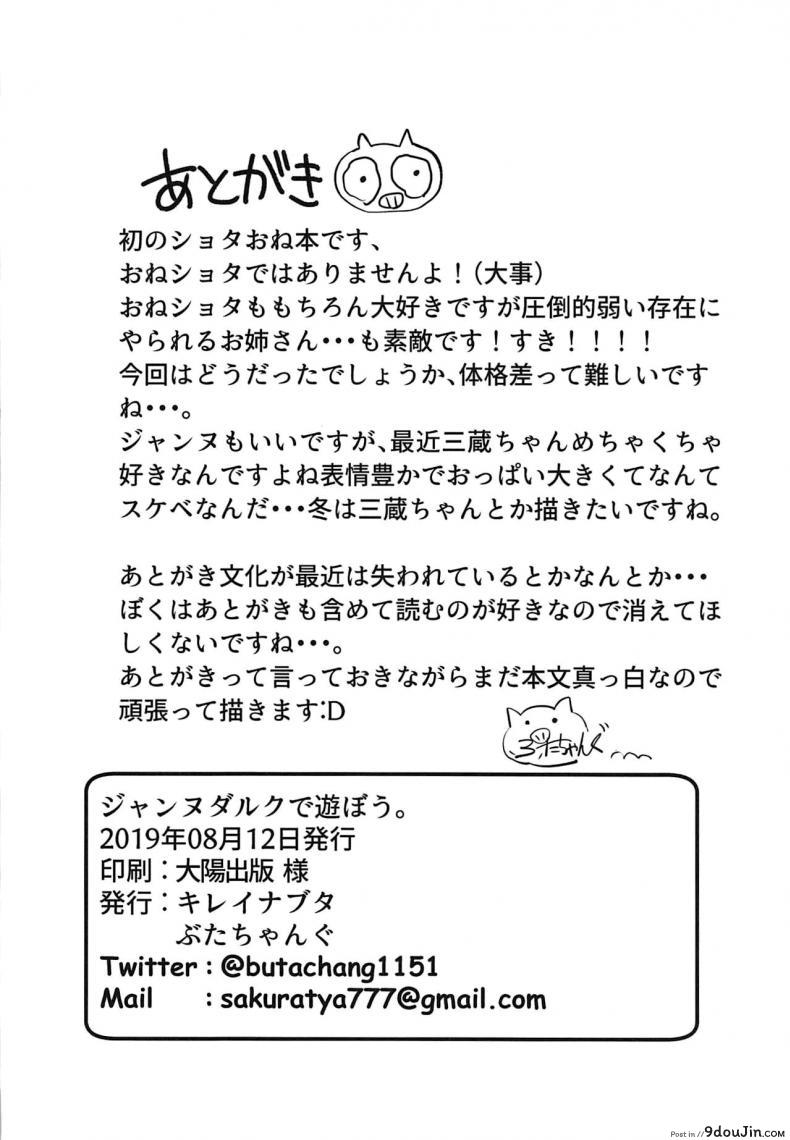 あとがき
初のショタおね本です、
おねショタではありませんよ！（大事）
おねショタももちろん大好きですが圧倒的弱い存在に
やられるお姉さん・・・も素敵です！すき！！！！
今回はどうだったでしょうか、体格差って難しいです
ね・・・。
ジャンヌもいいですが、最近三蔵ちゃんめちゃくちゃ
好きなんですよね表情豊かでおっぱい大きくてなんて
スケベなんだ・・・冬は三蔵ちゃんとか描きたいですね。
あとがき文化が最近は失われているとかなんとか・・・
ぼくはあとがきも含めて読むのが好きなので消えてほ
しくないですね・・・。
あとがきって言っておきながらまだ本文真っ白なので
頑張って描きます:D
ぶたちゃんぐ
ジャンヌダルクで遊ぼう。
2019年08月12日発行
印刷：大陽出版 様
発行：キレイナブタ
ぶたちゃんぐ
Twitter : @butachang1151
Mail : sakuratya777@gmail.com
Post in // 9douJin.com